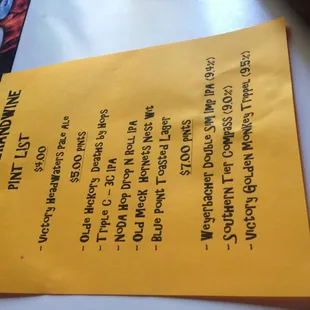 PINT LIST
$4.00
- Victory HeadWaters Pale Ale
$5.00 PINTS
- Olde Hickory Deaths by Hops
- Triple C - 3C IPA
- NoDa Hop Drop N Roll IPA
- Old Meck Hornets Nest Wit
- Blue Point Toasted Lager
$7.00 PINTS
- Weyerbacher Double Sim IMP IPA (9.4%)
- Southern Tier Compass (9.0%)
- Victory Golden Monkey Tripel (9.5%)